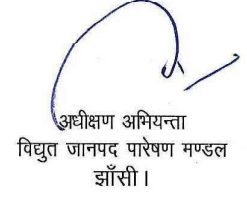 अधीक्षण अभियन्ता
विद्युत जानपद पारेषण मण्डल
झाँसी।